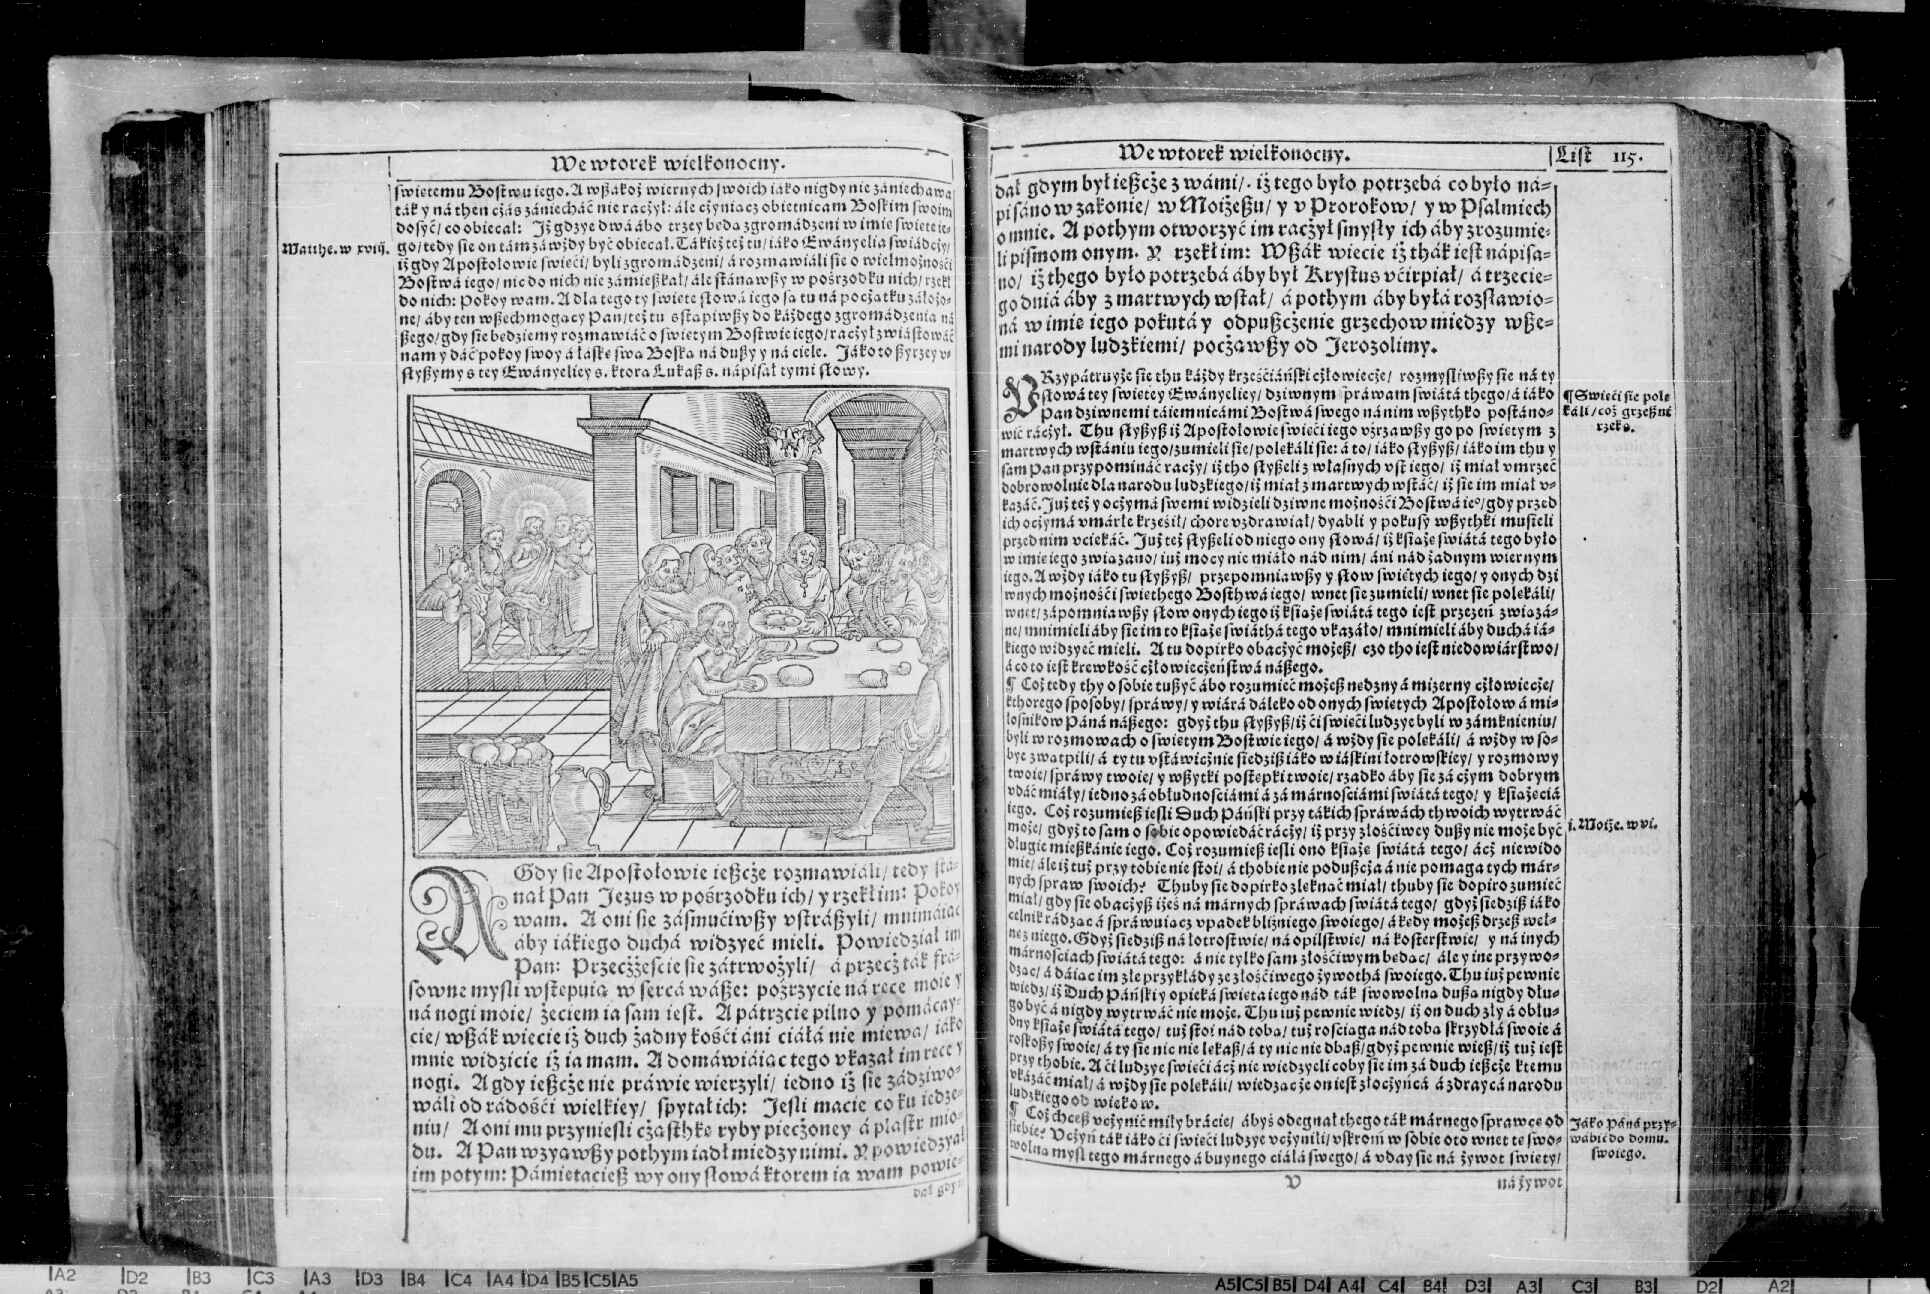 We wtorek wielkonocny.
swietemu Bostwu iego. A wßákoż wiernych swoich iáko nigdy nie zániechawa
ták y ná then cżás zániecháć nie racżył: ále cżyniącz obietnicam Boskim swoim
dosyć/ co obiecał: Jż gdzye dwá ábo trzey będą zgromádzeni w imię swięte ie-
Matthe. w xviij.
go/ tedy się on tám záwżdy być obiecał. Tákież też tu/ iáko Ewányelia swiádcży/
iż gdy Apostołowie swięći/ byli zgromádzeni/ á rozmawiáli się o wielmożnośći
Bostwá iego/ nic do nich nie zámießkał/ ále stánąwßy w pośrzodku nich/ rzekł
do nich: Pokoy wam. A dla tego ty swięte słowá iego są tu ná pocżątku záłożo-
ne/ áby ten wßechmogący Pan/ też tu zstąpiwßy do káżdego zgromádzenia ná
ßego/ gdy się będziemy rozmawiáć o swiętym Bostwie iego/ racżył zwiástowáć
nam y dáć pokoy swoy á łáskę swą Boską ná dußy y ná ciele. Jáko to ßyrzey v-
słyßymy s tey Ewányeliey s. ktorą Lukaß s. nápisał tymi słowy.
A Gdy się Apostołowie ießcże rozmawiáli/ tedy stá-
nął Pan Jezus w pośrzodku ich/ y rzekł im: Pokoy
wam. A oni się zásmućiwßy vstráßyli/ mnimáiąc
áby iákiego duchá widzyeć mieli. Powiedział im
Pan: Przecżżeście się zátrwożyli/ á przecż ták frá-
sowne mysli wstępuią w sercá wáße: poźrzycie ná ręce moie y
ná nogi moie/ żeciem ia sam iest. A pátrzcie pilno y pomácay-
cie/ wßák wiecie iż duch żadny kośći áni ciáłá nie miewa/ iáko
mnie widzicie iż ia mam. A domáwiáiąc tego vkazał im ręce y
nogi. A gdy ießcże nie práwie wierzyli/ iedno iż się zádziwo-
wáli od rádośći wielkiey/ spytał ich: Jesli macie co ku iedze-
niu/ A oni mu przyniesli cżásthkę ryby piecżoney á plastr mio-
du. A Pan wzyąwßy pothym iadł miedzy nimi. Y powiedzyał
im potym: Pámiętacieß wy ony słowá ktorem ia wam powie-
dał gdym
We wtorek wielkonocny.
List 115.
dał gdym był ießcże z wámi/ iż tego było potrzebá co było ná-
pisano w zakonie/ w Moiżeßu/ y v Prorokow/ y w Psalmiech
o mnie. A pothym otworzyć im racżył smysły ich áby zrozumie-
li pismom onym. Y rzekł im: Wßák wiecie iż thák iest nápisa-
no/ iż thego było potrzebá áby był Krystus vćirpiał/ á trzecie-
go dniá áby z martwych wstał/ á pothym áby byłá rozsławio-
ná w imię iego pokutá y odpußcżenie grzechow miedzy wße-
mi narody ludzkiemi/ pocżąwßy od Jerozolimy.
PRzypátruyże się thu káżdy krześćiáński cżłowiecże/ rozmysliwßy się ná ty
słowá tey swiętey Ewányeliey/ dziwnym sprawam swiátá thego/ á iáko
Pan dziwnemi táiemnicámi Bostwá swego nánim wßythko postáno-
¶ Swięći się polę
káli/ coż grzeßni
rzeką.
wić racżył. Thu słyßyß iż Apostołowie swięći iego vźrzawßy go po swiętym z
martwych wstániu iego/ zumieli się/ polękáli się: á to/ iáko słyßyß/ iáko im thu y
sam Pan przypomináć racży/ iż tho słyßeli z własnych vst iego/ iż miał vmrzeć
dobrowolnie dla narodu ludzkiego/ iż miał z martwych wstáć/ iż się im miał v-
kazáć. Już też y ocżymá swemi widzieli dziwne możnośći Bostwá ie°/ gdy przed
ich ocżymá vmárłe krzeſił/ chore vzdrawiał/ dyabli y pokusy wßythki musieli
przed nim vciekáć. Już też słyßeli od niego ony słowá/ iż książę swiátá tego było
w imię iego związano/ iuż mocy nie miáło nád nim/ áni nád żadnym wiernym
iego. A wżdy iáko tu słyßyß/ przepomniawßy y słow swiętych iego/ y onych dzi
wnych możnośći swięthego Bosthwá iego/ wnet się zumieli/ wnet się polękáli/
wnet/ zápomniawßy słow onych iego iż książę swiátá tego iest przezeń związá-
ne/ mnimieli áby się im to książę swiáthá tego vkazáło/ mnimieli áby duchá iá-
kiego widzyeć mieli. A tu dopirko obacżyć możeß/ czo tho iest niedowiárstwo/
á co to iest krewkość cżłowiecżeństwá náßego.
¶ Coż tedy thy o sobie tußyć ábo rozumieć możeß nędzny á mizerny cżłowiecże/
kthorego sposoby/ spráwy/ y wiárá dáleko od onych swiętych Apostołow á mi-
łosnikow Páná náßego: gdyż thu słyßyß/ iż ći swięći ludzye byli w zámknieniu/
byli w rozmowach o swiętym Bostwie iego/ á wżdy się polękáli/ á wżdy w so-
bye zwątpili/ á ty tu vstáwicżnie siedziß iáko w iáskini łotrowskiey/ y rozmowy
twoie/ spráwy twoie/ y wßytki postępki twoie/ rzadko áby się zá cżym dobrym
vdáć miáły/ iedno zá obłudnosciámi á zá márnosciámi swiátá tego/ y książęciá
iego. Coż rozumieß iesli Duch Páński przy tákich spráwách thwoich wytrwáć
może/ gdyż to sam o sobie opowiedáć racży/ iż przy złośćiwey dußy nie może być
j. Moiże. w vi.
długie mießkánie iego. Coż rozumieß iesli ono książę swiátá tego/ ácż niewido
mie/ ále iż tuż przy tobie nie stoi/ á thobie nie podußcża á nie pomaga tych már-
nych spraw swoich? Thuby się dopirko zlęknąć miał/ thuby się dopiro zumieć
miał/ gdy się obacżyß iżeś ná márnych spráwach swiátá tego/ gdyż siedziß iáko
celnik rádząc á spráwuiącz vpadek bliźniego swoiego/ á kedy możeß drzeß weł-
nę z niego. Gdyż siedziß ná łotrostwie/ ná opilstwie/ ná kosterstwie/ y ná inych
márnosciach swiátá tego: á nie tylko sam złośćiwym będąc/ ále y ine przywo-
dząc/ á dáiąc im złe przykłády ze złośćiwego żywothá swoiego. Thu iuż pewnie
wiedz/ iż Duch Páński y opieká swięta iego nád ták swowolną dußą nigdy dłu-
go być á nigdy wytrwáć nie może. Thu iuż pewnie wiedz/ iż on duch zły á obłu-
dny książę swiátá tego/ tuż stoi nád tobą/ tuż rościąga nád tobą skrzydłá swoie á
roskoßy swoie/ á ty się nic nie lękaß/ á ty nic nie dbaß/ gdyż pewnie wieß/ iż tuż iest
przy thobie. A ći ludzye swięći ácż nie wiedzyeli coby się im zá duch ießcże ktemu
vkázáć miał/ á wżdy się polękáli/ wiedząc że on iest złocżyńcá á zdraycá narodu
ludzkiego od wiekow.
¶ Coż chceß vcżynić miły brácie/ ábyś odegnał thego ták márnego sprawcę od
siebie? Vcżyń ták iáko ći swięći ludzye vcżynili/ vskrom w sobie oto wnet tę swo-
wolną mysl tego márnego á buynego ciáłá swego/ á vday się ná żywot swięty/
Jáko Páná przy-
wabić do domu
swoiego.
V
ná żywot